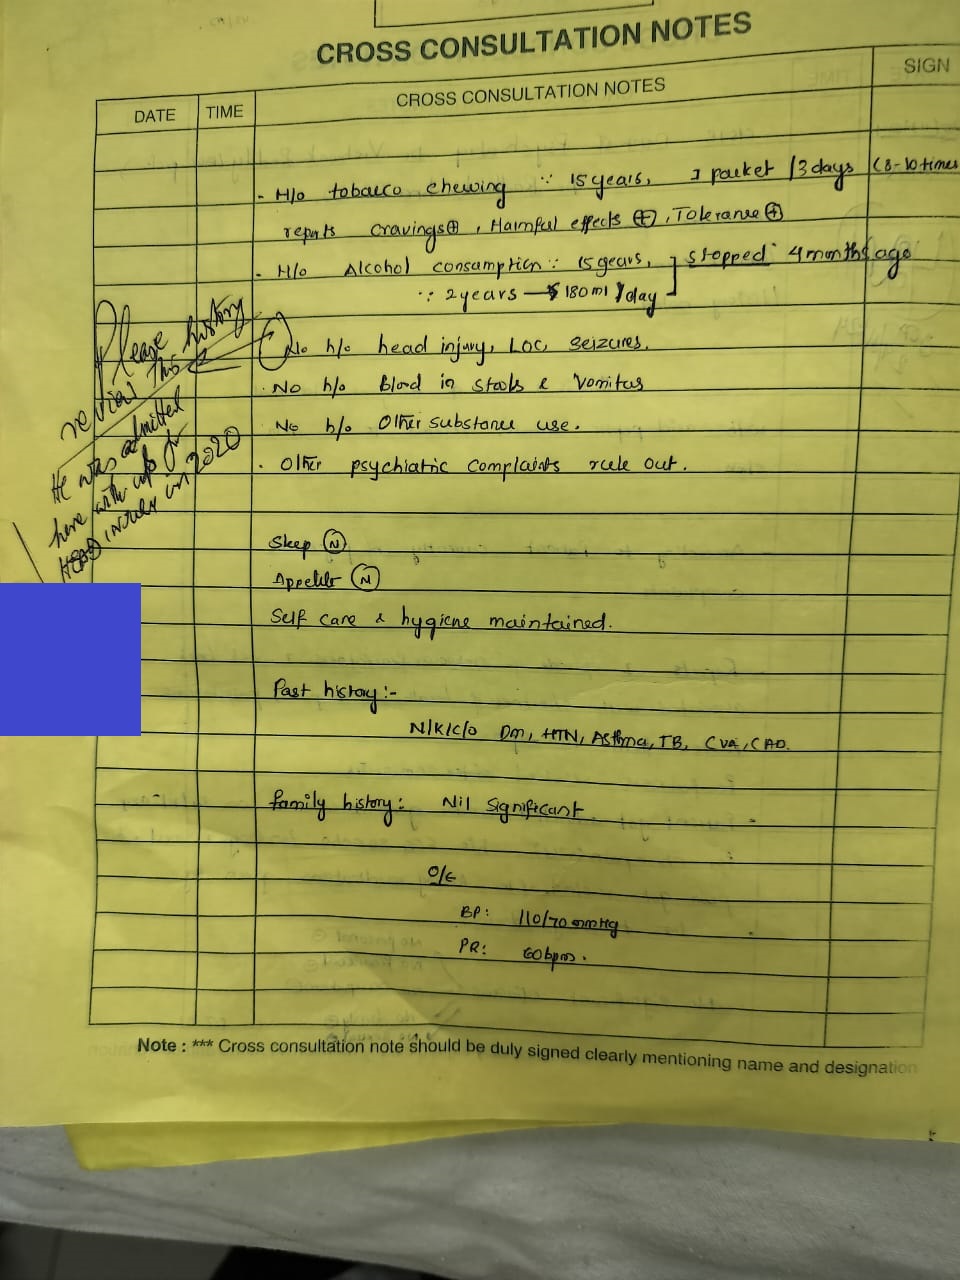 CROSS CONSULTATION NOTES
DATE TIME CROSS CONSULTATION NOTES SIGN
- H/o tobacco chewing ∵ 15 years, 1 packet /3 days (8-10 times
reports cravings⊕, Harmful effects ⊕, Tolerance ⊕
- H/o Alcohol consumption ∵ 15 years, ] stopped 4 months ago
∵ 2 years — 180 ml /day
No h/o head injury, LOC, Seizures.
. No h/o Blood in stools & Vomitus
No h/o Other substance use.
. Other psychiatric complaints rule out.
Please
this history
He was admitted
here with
HEAD INJURY in 2020
Sleep (N)
Appetite (N)
Self care & hygiene maintained.
Past history:-
N/K/C/O Dm, HTN, Asthma, TB, CVA, CAD.
Family history: Nil Significant
O/E
BP: 110/70 mmHg
PR: 60bpm.
Note : *** Cross consultation note should be duly signed clearly mentioning name and designation